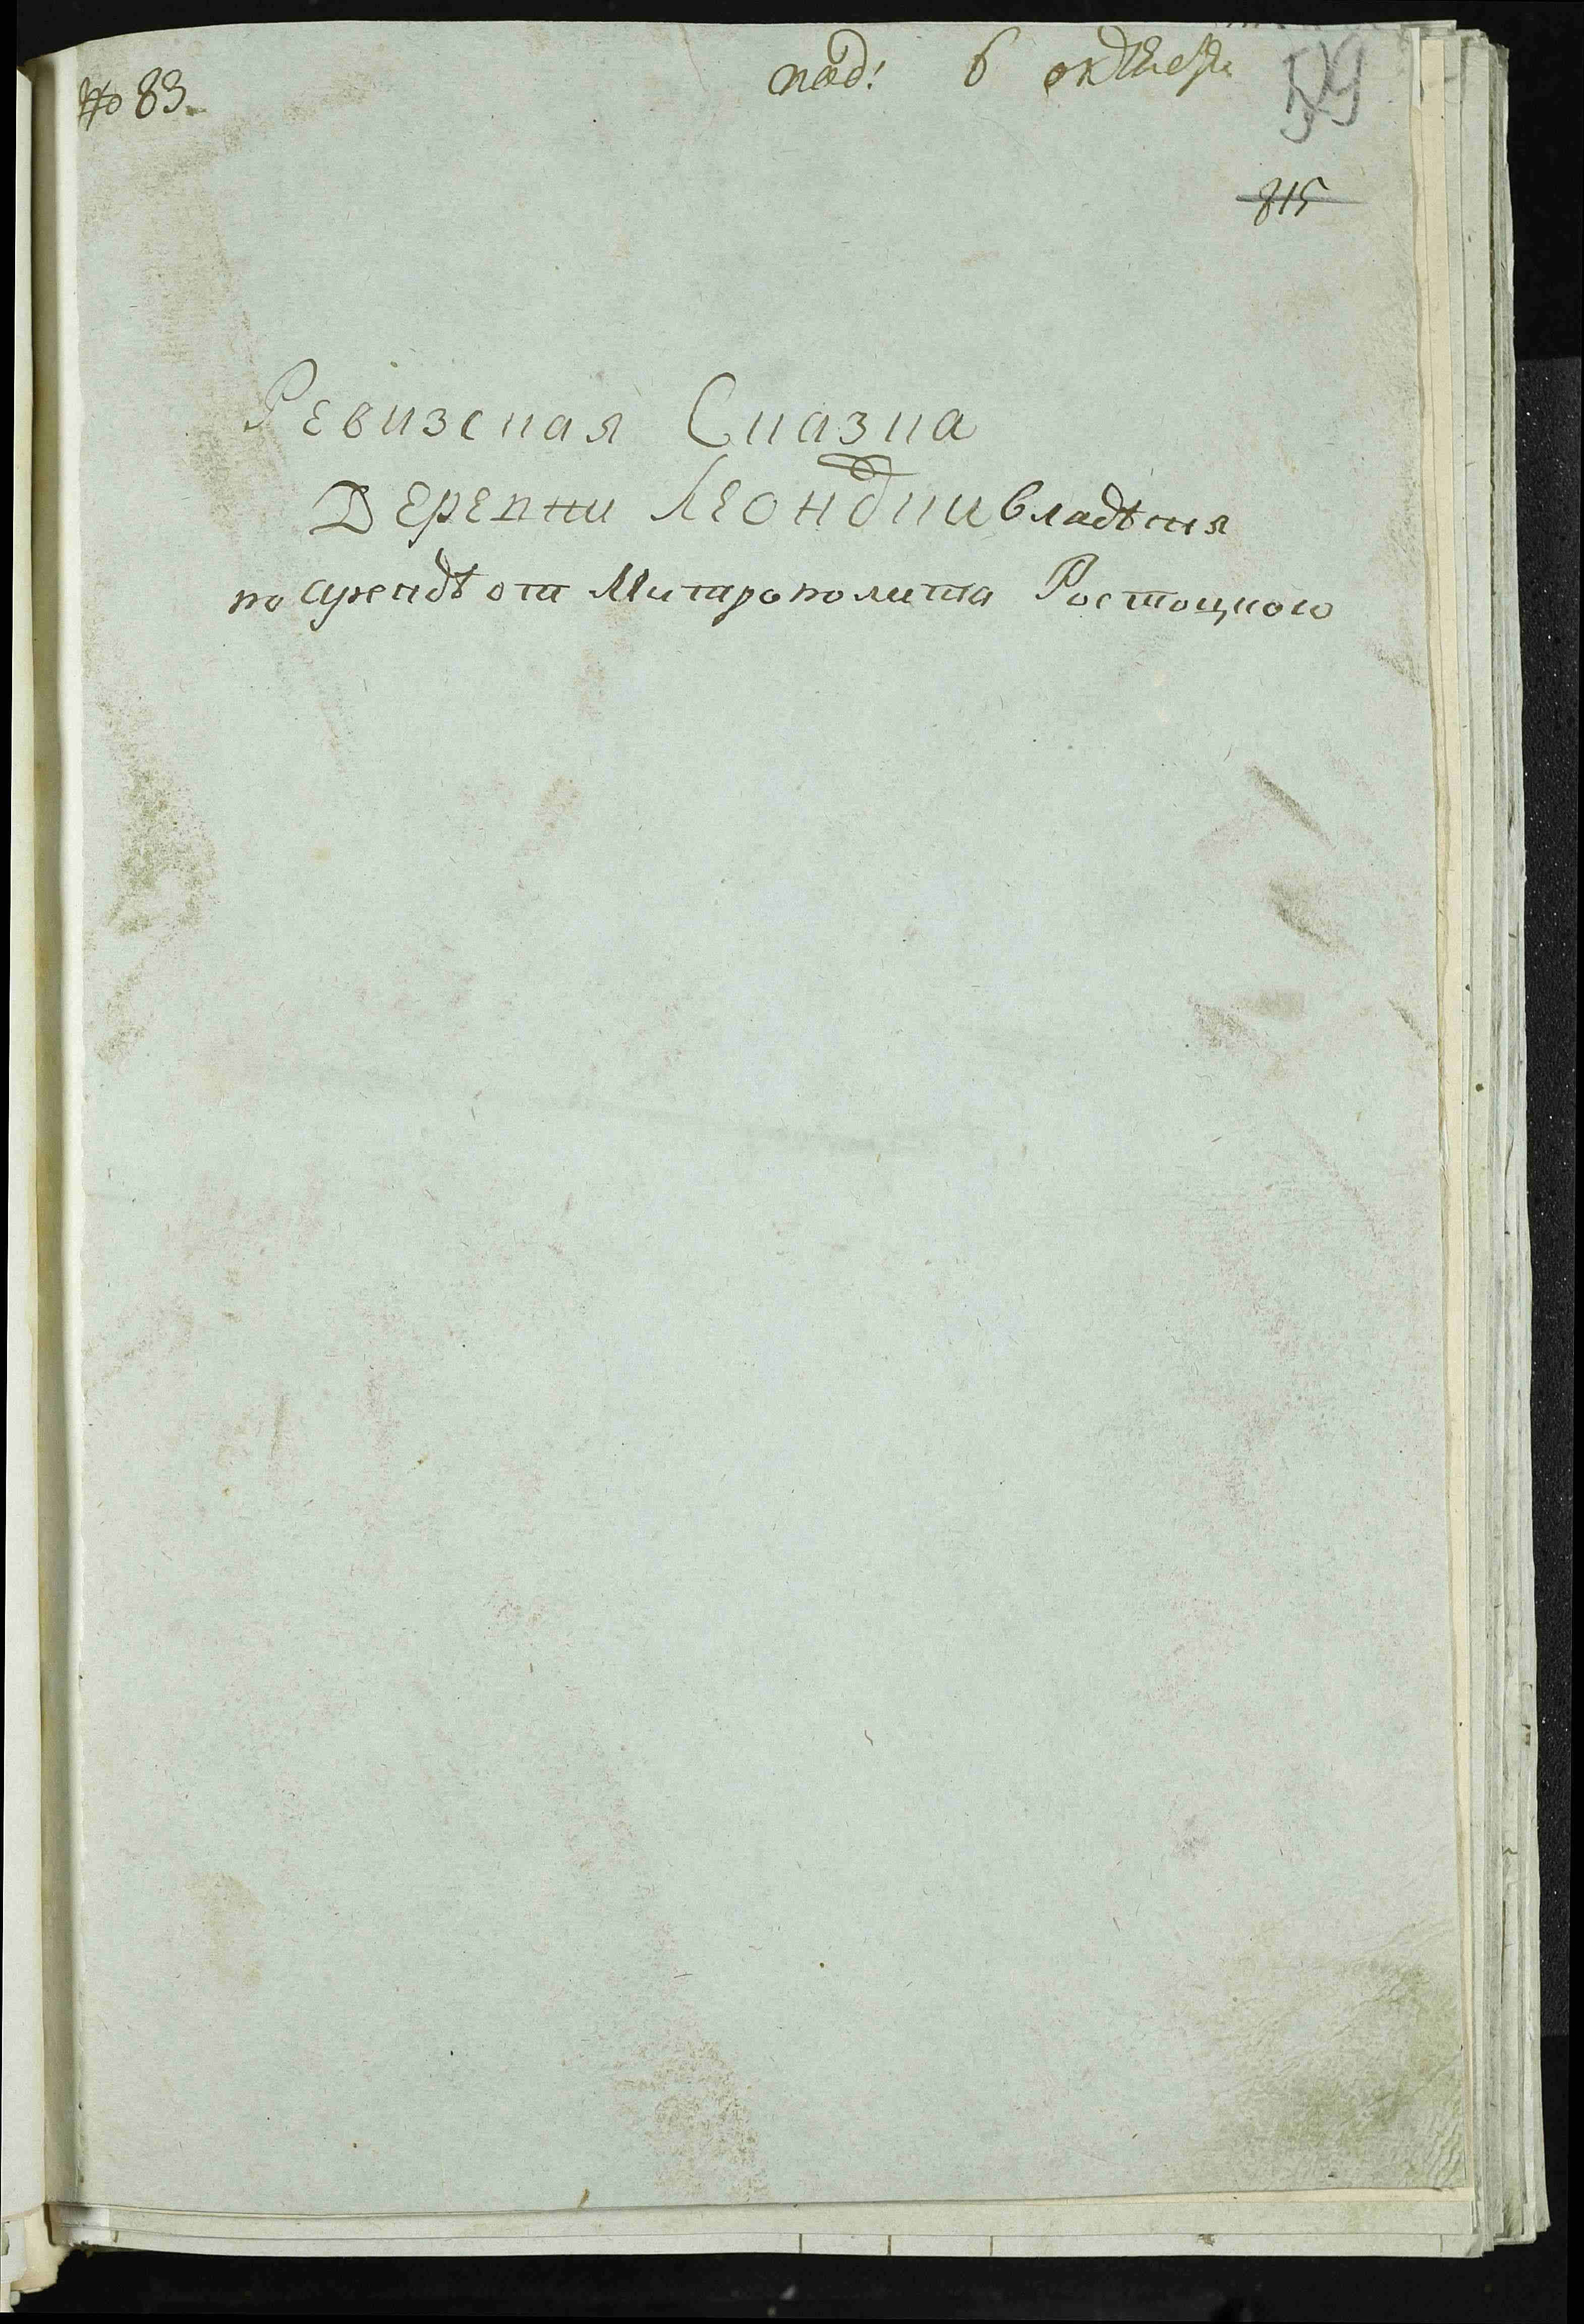 № 83.
под: 6 октября
59
815
Ревизская Сказка
Деревни Леондпи владѣния
по арендѣ отъ Митрополита Ростоцкого